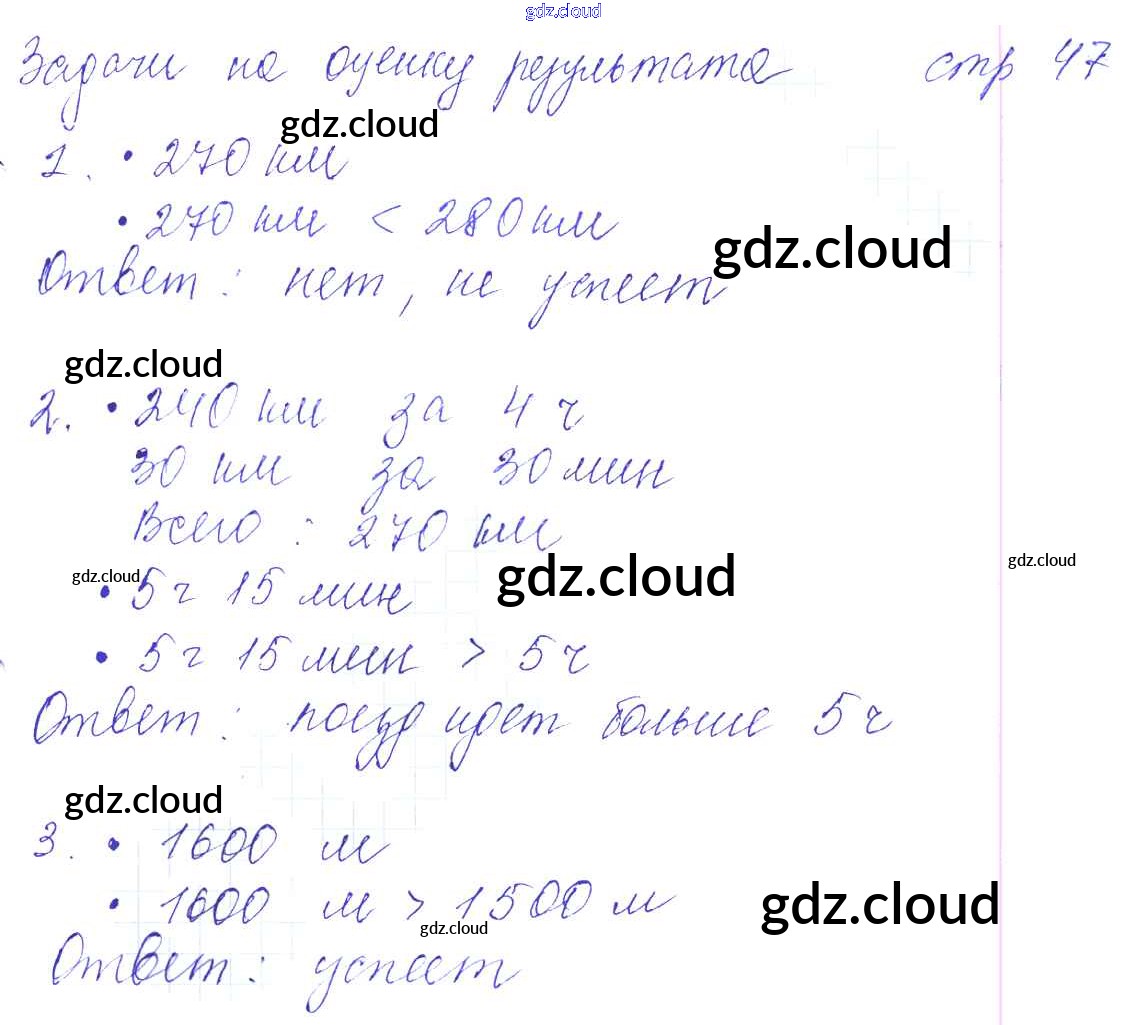 gdz.cloud
Задачи на оценку результата стр 47
gdz.cloud
1. • 270 км
• 270 км < 280 км
gdz.cloud
Ответ: нет, не успеет
gdz.cloud
2. • 240 км за 4 ч
30 км за 30 мин
Всего: 270 км
gdz.cloud
gdz.cloud
gdz.cloud
• 5 ч 15 мин
• 5 ч 15 мин > 5 ч
Ответ: поезд идет больше 5 ч
gdz.cloud
3. • 1600 м
• 1600 м > 1500 м
gdz.cloud
gdz.cloud
Ответ: успеет